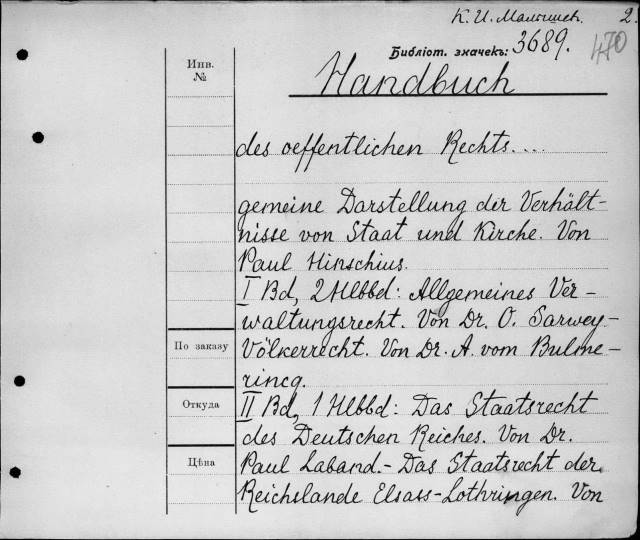 К. И. Малышев. 2.
Библіот. значекъ: 3689. 470
Инв.
№
Handbuch
des oeffentlichen Rechts....
gemeine Darstellung der Verhält-
nisse von Staat und Kirche. Von
Paul Hinschius.
I Bd, 2 Hlbbd: Allgemeines Ver-
waltungsrecht. Von Dr. O. Sarwey-
По заказу
Völkerrecht. Von Dr. A. vom Bulme-
rincq.
Откуда
II Bd, 1 Hlbbd: Das Staatsrecht
des Deutschen Reiches. Von Dr.
Цѣна
Paul Laband.- Das Staatsrecht der
Reichslande Elsass-Lothringen. Von